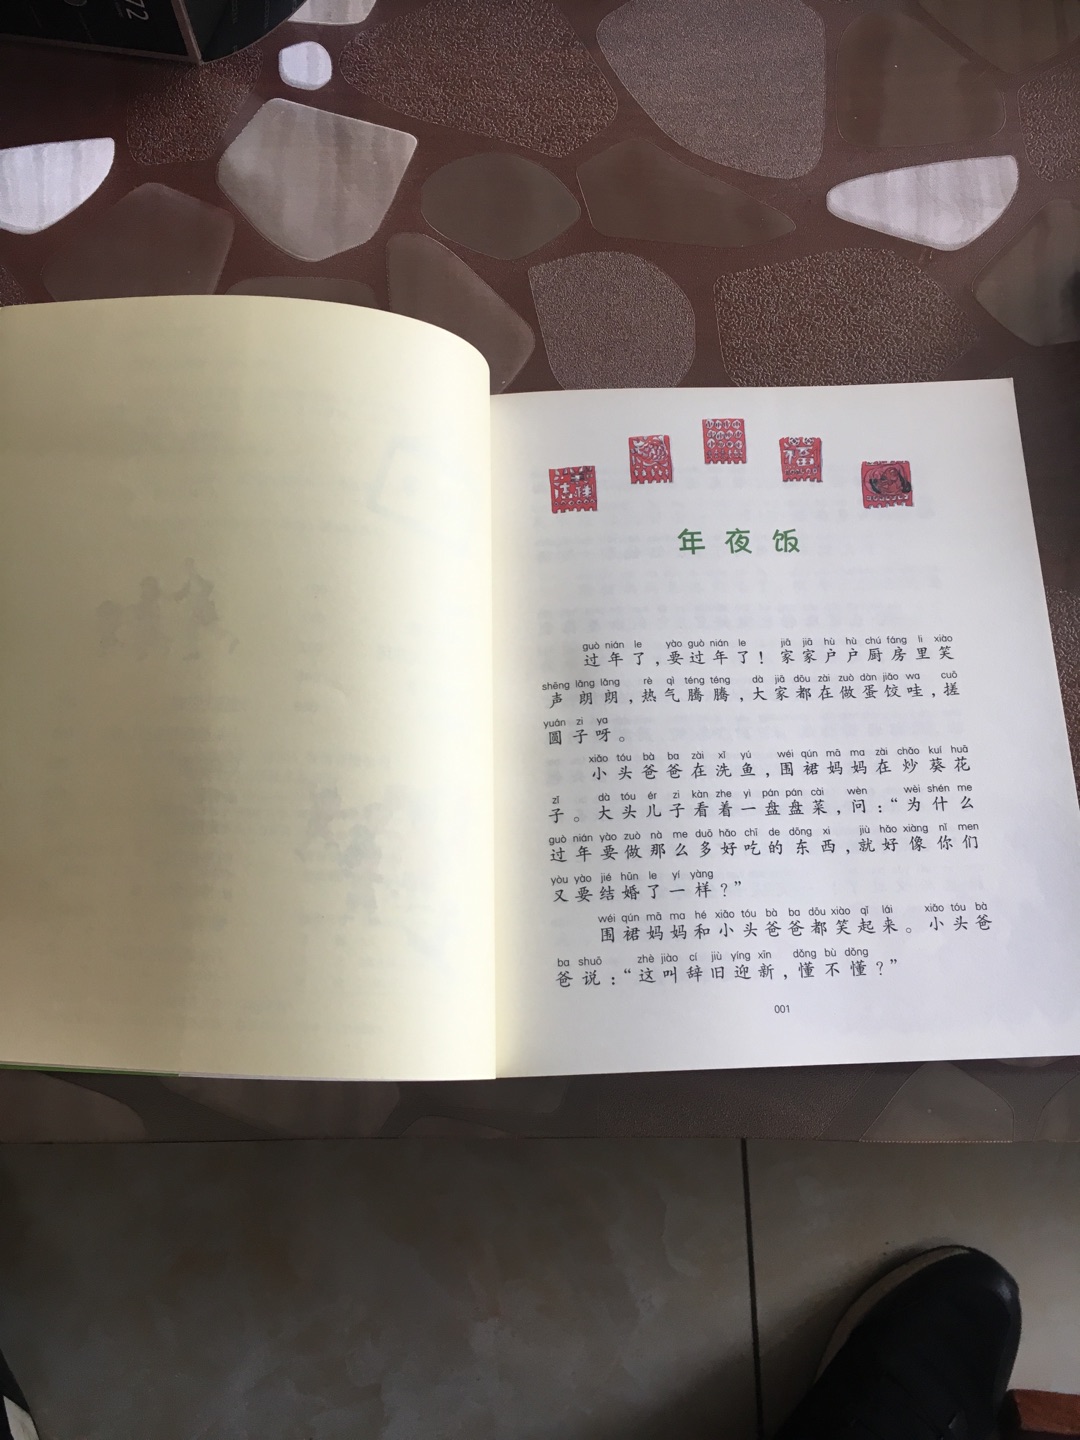 72
福
年夜饭
guò nián le yào guò nián le jiā jiā hù hù chú fáng li xiào
过年了，要过年了！家家户户厨房里笑
shēng lǎng lǎng rè qì téng téng dà jiā dōu zài zuò dàn jiǎo wa cuō
声朗朗，热气腾腾，大家都在做蛋饺哇，搓
yuán zi ya
圆子呀。
xiǎo tóu bà ba zài xǐ yú wéi qún mā ma zài chǎo kuí huā
小头爸爸在洗鱼，围裙妈妈在炒葵花
zǐ dà tóu ér zi kàn zhe yì pán pán cài wèn wèi shén me
子。大头儿子看着一盘盘菜，问：“为什么
guò nián yào zuò nà me duō hǎo chī de dōng xi jiù hǎo xiàng nǐ men
过年要做那么多好吃的东西，就好像你们
yòu yào jié hūn le yí yàng
又要结婚了一样？”
wéi qún mā ma hé xiǎo tóu bà ba dōu xiào qǐ lái xiǎo tóu bà
围裙妈妈和小头爸爸都笑起来。小头爸
ba shuō zhè jiào cí jiù yíng xīn dǒng bù dǒng
爸说：“这叫辞旧迎新，懂不懂？”
001